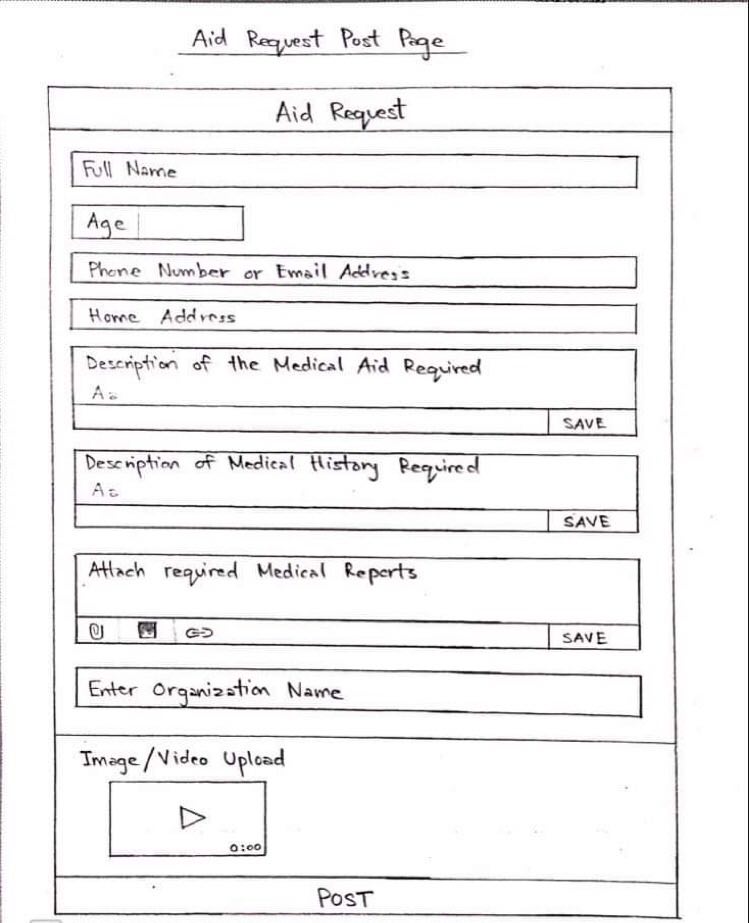 Aid Request Post Page
Aid Request
Full Name
Age
Phone Number or Email Address
Home Address
Description of the Medical Aid Required
A=
SAVE
Description of Medical History Required
A=
SAVE
Attach required Medical Reports
SAVE
Enter Organization Name
Image/Video Upload
0:00
POST